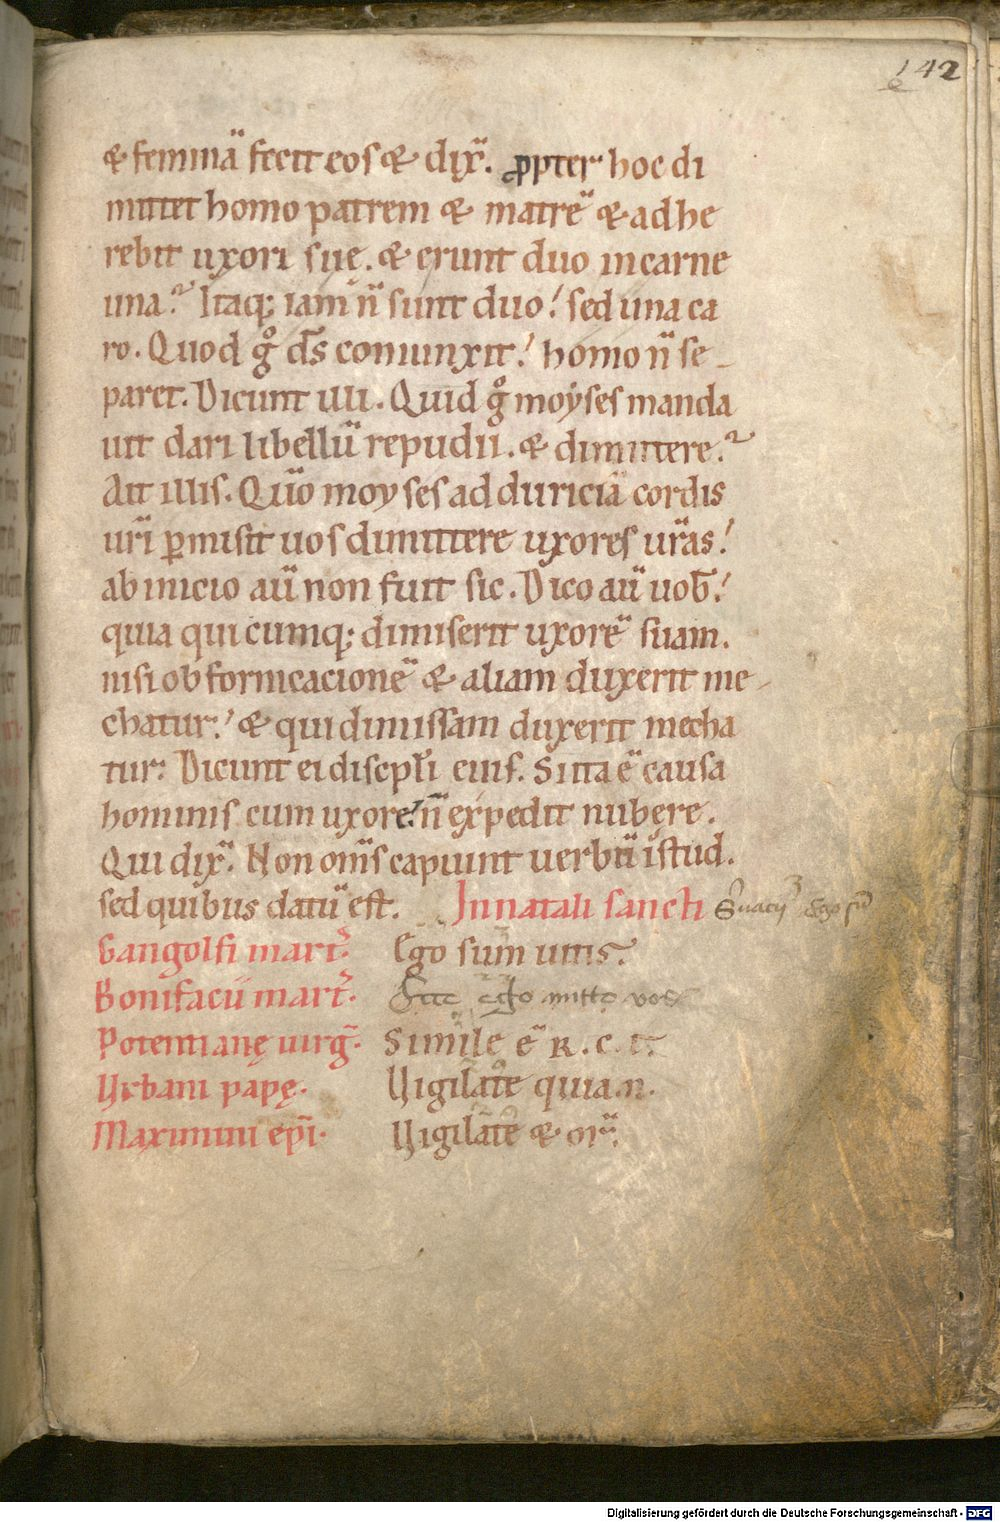 142
& feminā fecit eos & dix̄. p̱pter hoc di
mittet homo patrem & matrē & adhe
rebit uxori suę. & erunt duo incarne
una? Itaq; iam n̄ sunt duo! sed una ca
ro. Quod gͦ ds̄ coniunxit! homo n̄ se-
paret. Dicunt illi. Quid gͦ moyses manda
uit dari libellū repudii. & dimittere?
Ait illis. Qūo moyses ad duriciā cordis
ur̄i ꝑmisit uos dimittere uxores ur̄as!
ab inicio aū non fuit sic. Dico aū uob̄!
quia qui cumq; dimiserit uxorē suam.
nisi ob fornicacionē & aliam duxerit me-
chatur! & qui dimissam duxerit mecha
tur. Dicunt ei discipl̄i eius. Si ita ē causa
hominis cum uxore! n̄ expedit nubere.
Qui dix̄. Non om̄s capiunt uerbū istud.
sed quibus datū est. In natali sancti Seruacij Ego sū
Gangolfi mart̄. Ego sum uitis.
Bonifacii mart̄. Ecce ego mitto vos
Potentianę uirḡ. Simile ē R. c. t.
Urbani papę. Vigilate quia. n.
Maximini ep̄i. Vigilate & or̄.
Digitalisierung gefördert durch die Deutsche Forschungsgemeinschaft - DFG